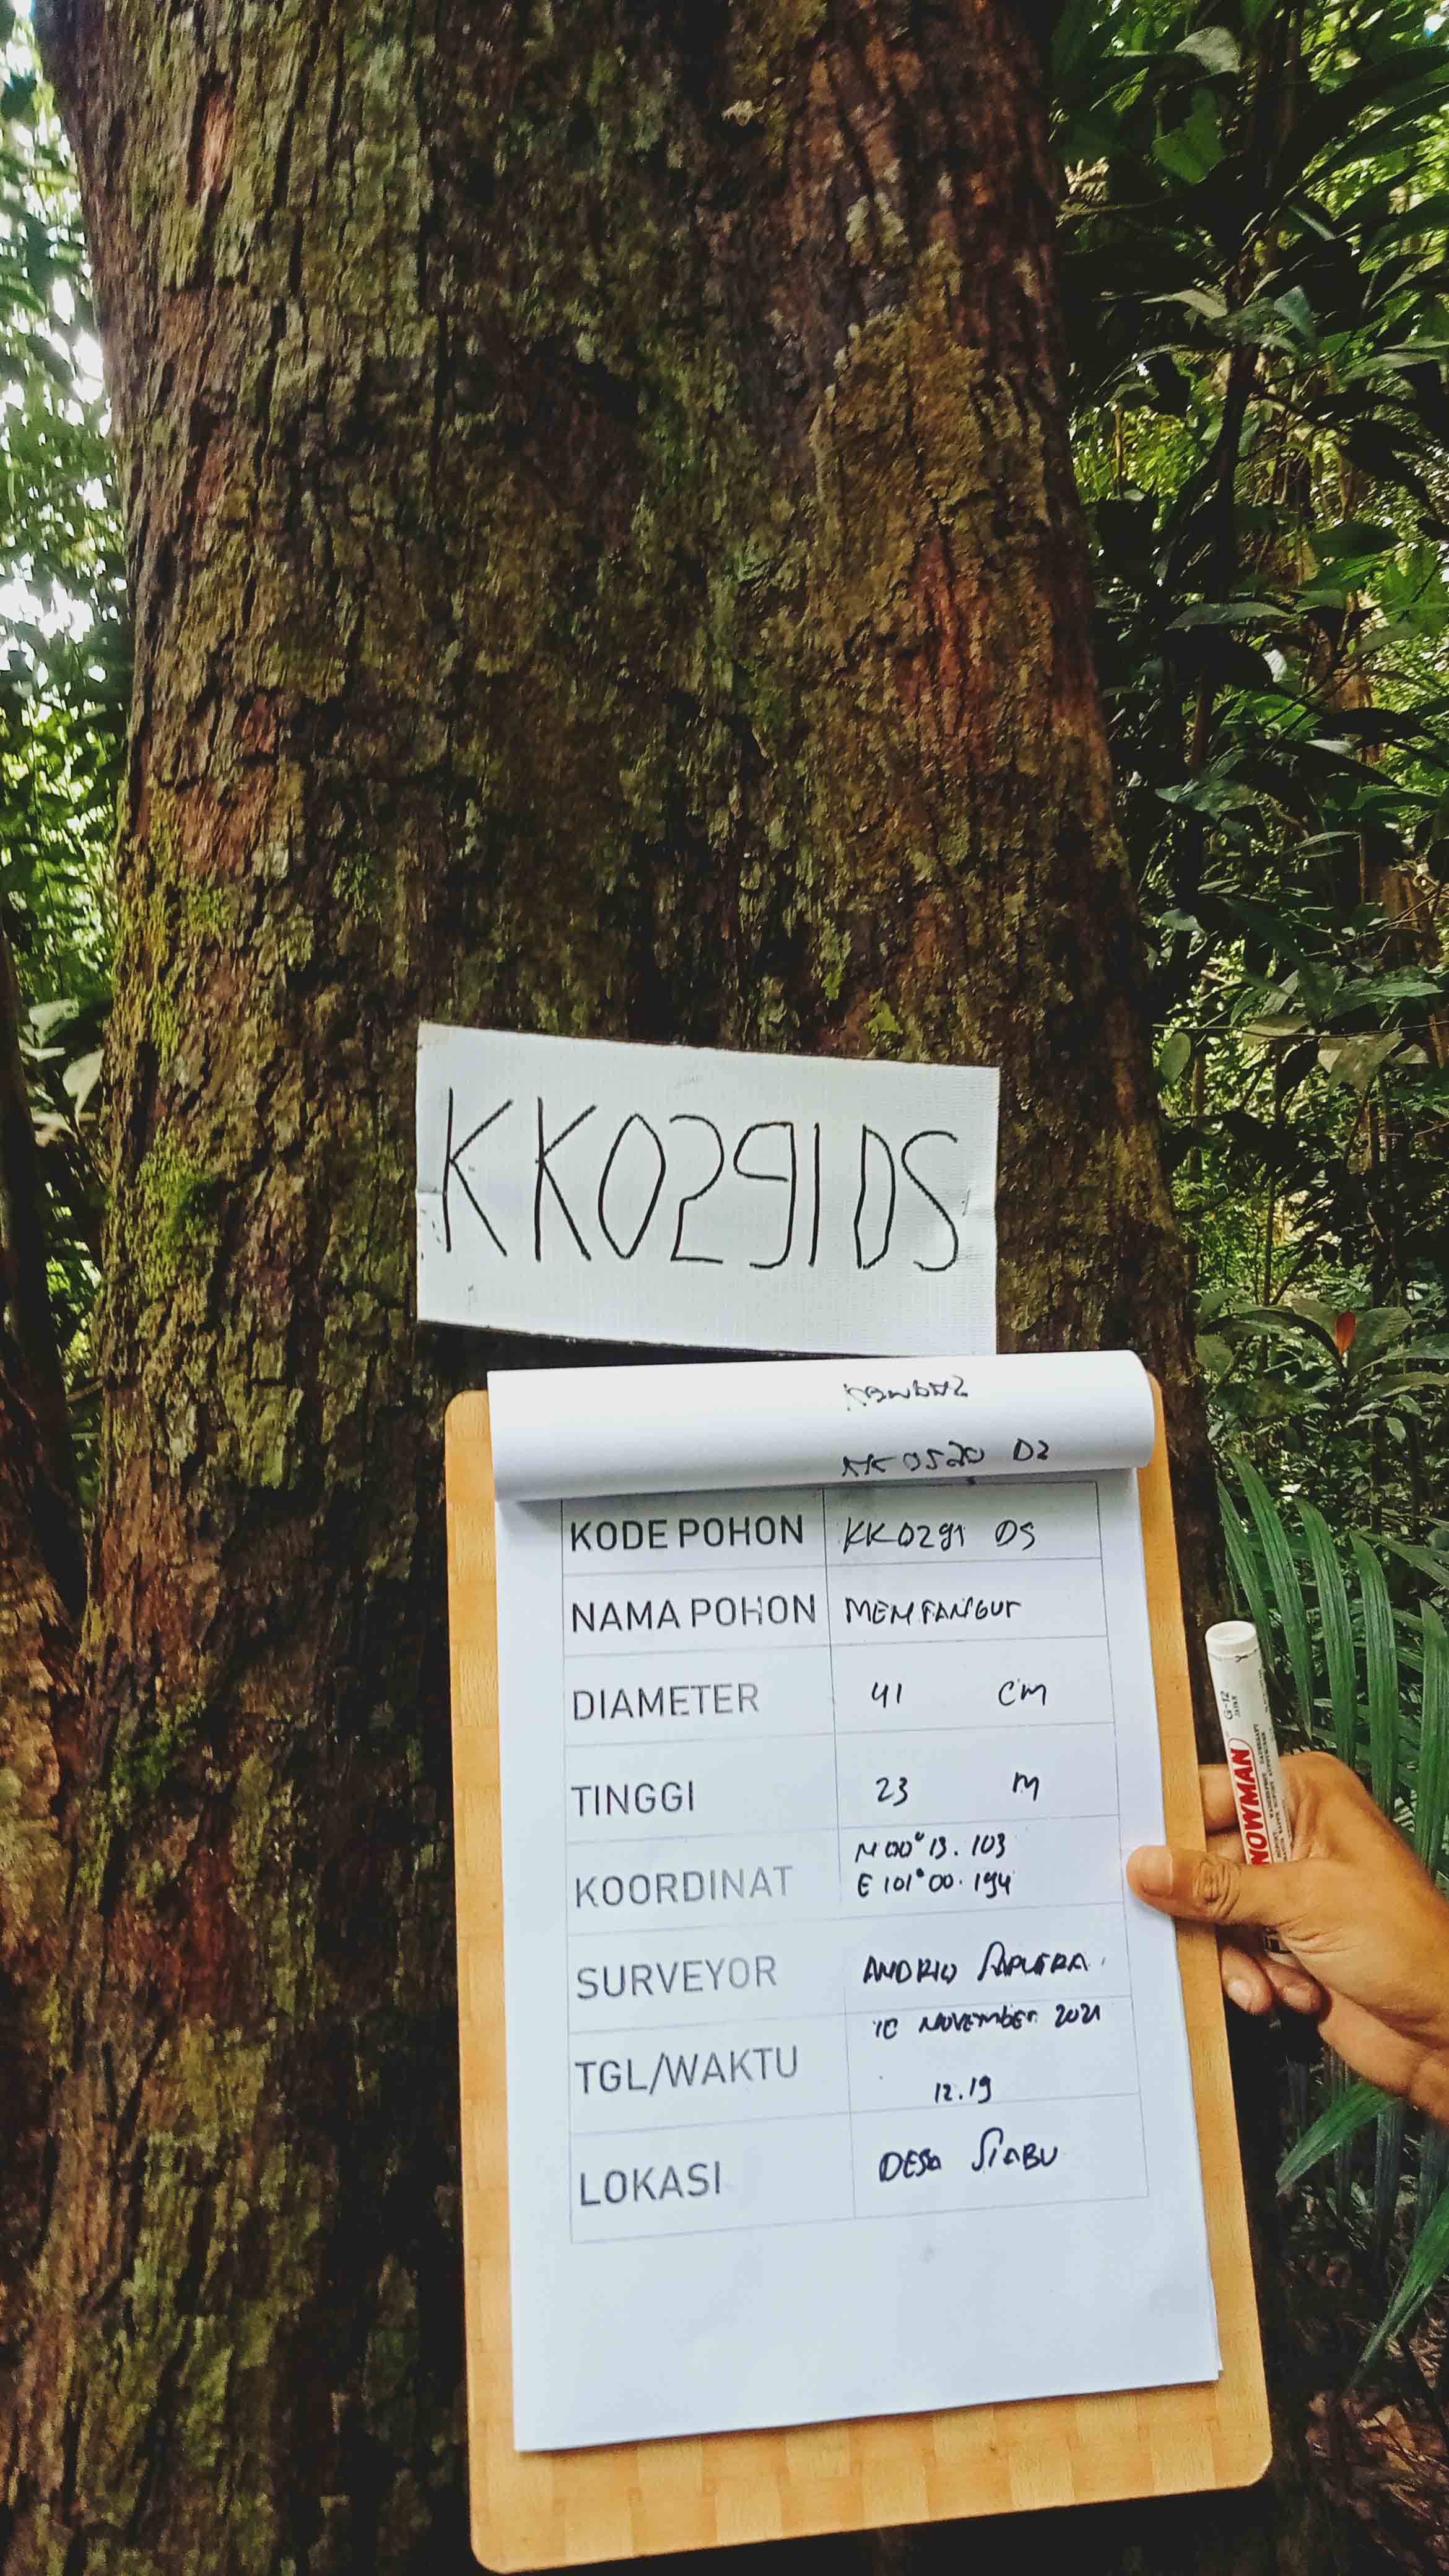 KK0291DS
KODE POHON KK0291 DS
NAMA POHON MEMPANGUT
DIAMETER 41 CM
TINGGI 23 M
KOORDINAT N 00° 13. 103
E 101° 00. 194
SURVEYOR ANDRIO SAPUTRA
TGL/WAKTU NOVEMBER 2021
12.19
LOKASI DESA SIABU
SNOWMAN
G-12